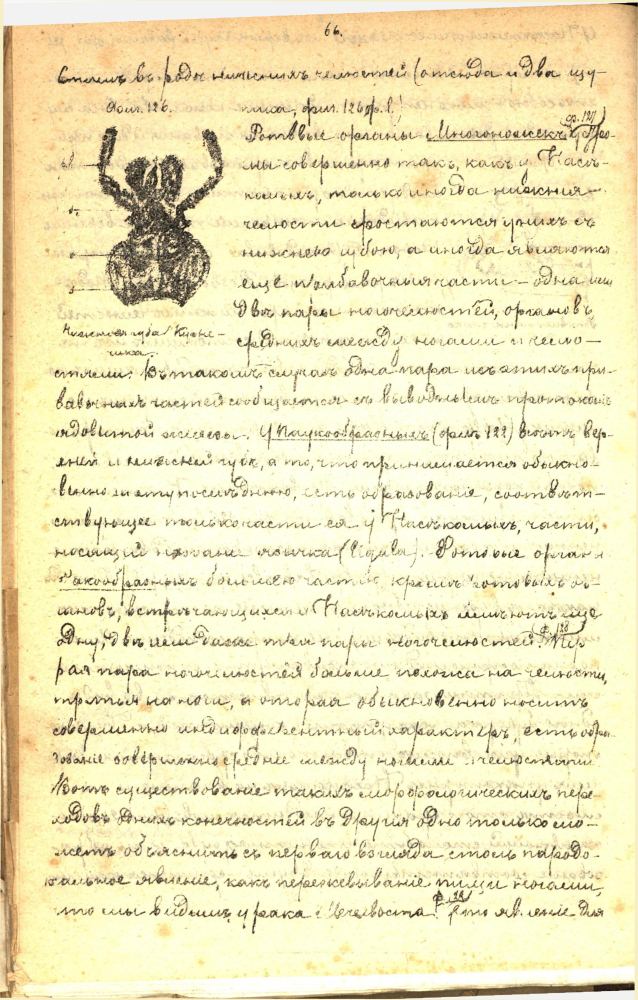 66.
стилъ въ родѣ нижнихъ челюстей (отсюда и два щу-
Фиг. 126.
пика, фиг. 126 f. l.)
фг. 127
Ротовые органы Многоножекъ
мы совершенно такъ, какъ у Насѣ-
комыхъ, только иногда нижнія
челюсти сростаются у нихъ съ
нижнею губою, а иногда являются
еще прибавочныя части – одна или
двѣ пары ногочелюстей, органовъ,
Нижняя губа Кузне-
чика.
среднихъ между ногами и челю-
стями. Въ такомъ случаѣ одна пара изъ этихъ при-
бавочныхъ частей сообщается съ выводнымъ протокомъ
ядовитой железы. У Паукообразныхъ (фиг. 122) нѣтъ вер-
хней и нижней губъ, а то, что принимается обыкно-
венно за эту послѣднюю, есть образованіе, соотвѣт-
ствующее только части ея у Насѣкомыхъ, части,
носящей названіе язычка (ligula). Ротовые органы
Ракообразныхъ большею частію, кромѣ ротовыхъ ор-
гановъ, встрѣчающихся у Насѣкомыхъ имѣютъ еще
одну, двѣ или даже три пары ногочелюстей.
ф. 128
Пер-
вая пара ногочелюстей больше похожа на челюсти,
третья на ноги, а вторая обыкновенно носитъ
совершенно индифферентный характеръ, есть обра-
зованіе совершенно среднее между ногами и челюстями
Вотъ существованіе такихъ морфологическихъ пере-
ходовъ однихъ конечностей въ другія одно только мо-
жетъ объяснить съ перваго взгляда столь парадо-
кальное явленіе, какъ пережевываніе пищи ногами,
что мы видимъ у рака и Мечехвоста.
Это явленіе для